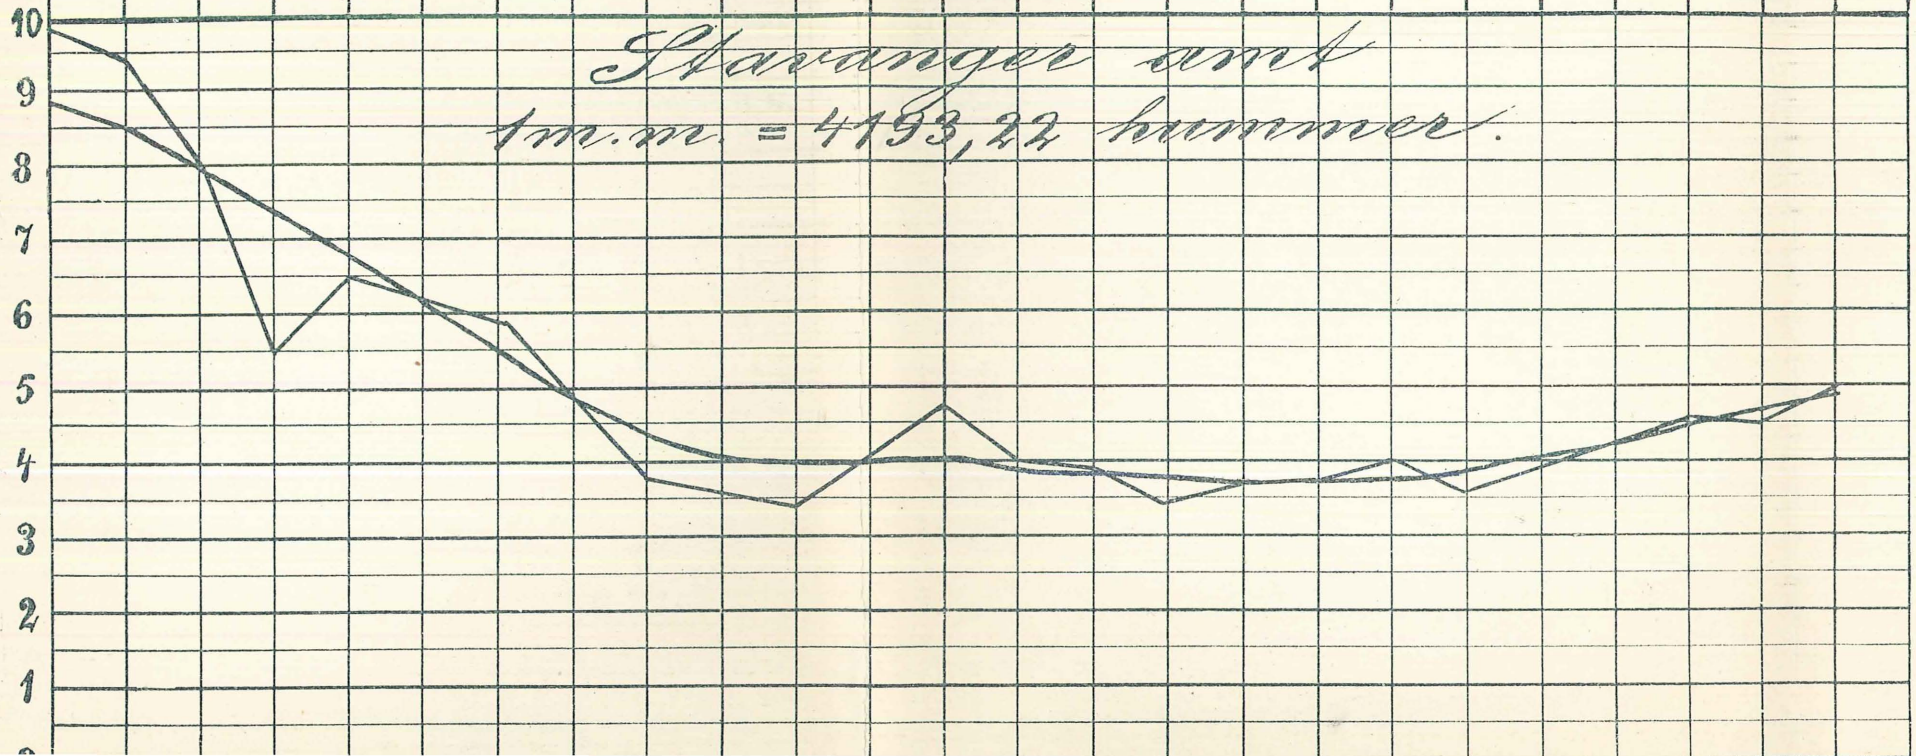 Stavanger amt
1 m.m. = 4193,22 hummer.
10
9
8
7
6
5
4
3
2
1